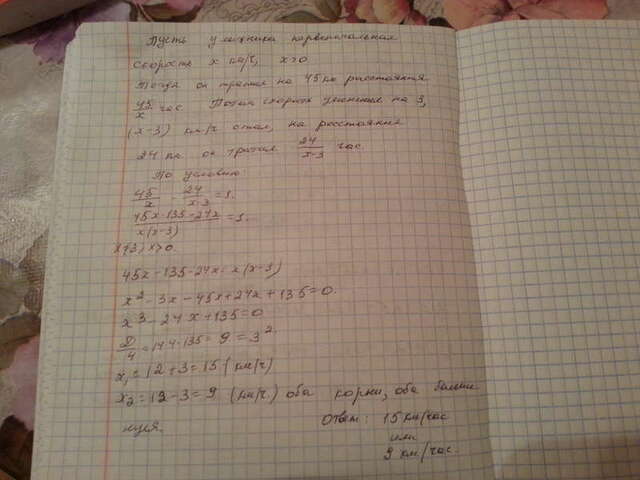 Пусть у лыжника первоначальная
скорость x км/ч, x>0
Тогда он тратил на 45 км расстояния
45/x час. Потом скорость уменьшил на 3,
(x-3) км/ч стал, на расстояния
24 км он тратил 24/x-3 час.
По условию
45/x - 24/x-3 = 1.
45x-135-24x/x(x-3) = 1.
x≠3, x>0
45x-135-24x=x(x-3)
x²-3x-45x+24x+135=0.
x²-24x+135=0
D/4=144-135=9=3².
x₁=12+3=15 (км/ч)
x₂=12-3=9 (км/ч.) оба корни, оба больше
нуля.
Ответ: 15 км/час
или
9 км/час.